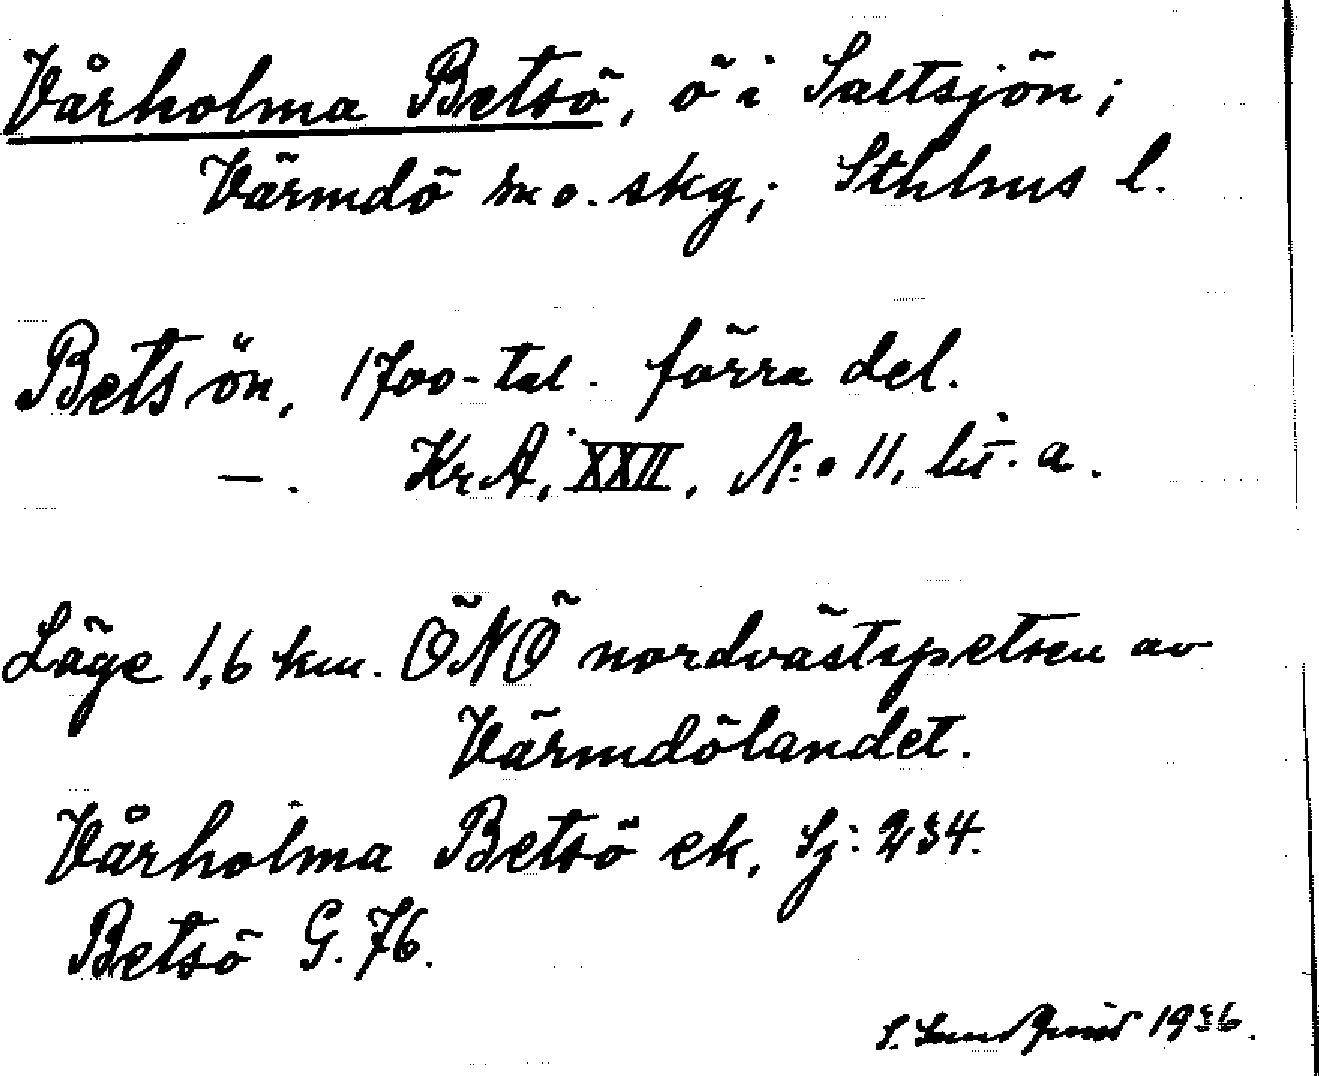 Vårholma Betsö, ö i Saltsjön;
Värmdö sn o. skg; Sthlms l.
Betsön, 1700-tal. förra del.
— . KrA, XXII, N:o 11, litt. a.
Läge 1,6 km. ÖNÖ nordvästspetsen av
Värmdölandet.
Vårholma Betsö ek, Sj: 234.
Betsö G. 76.
S. Sundquist 1936.